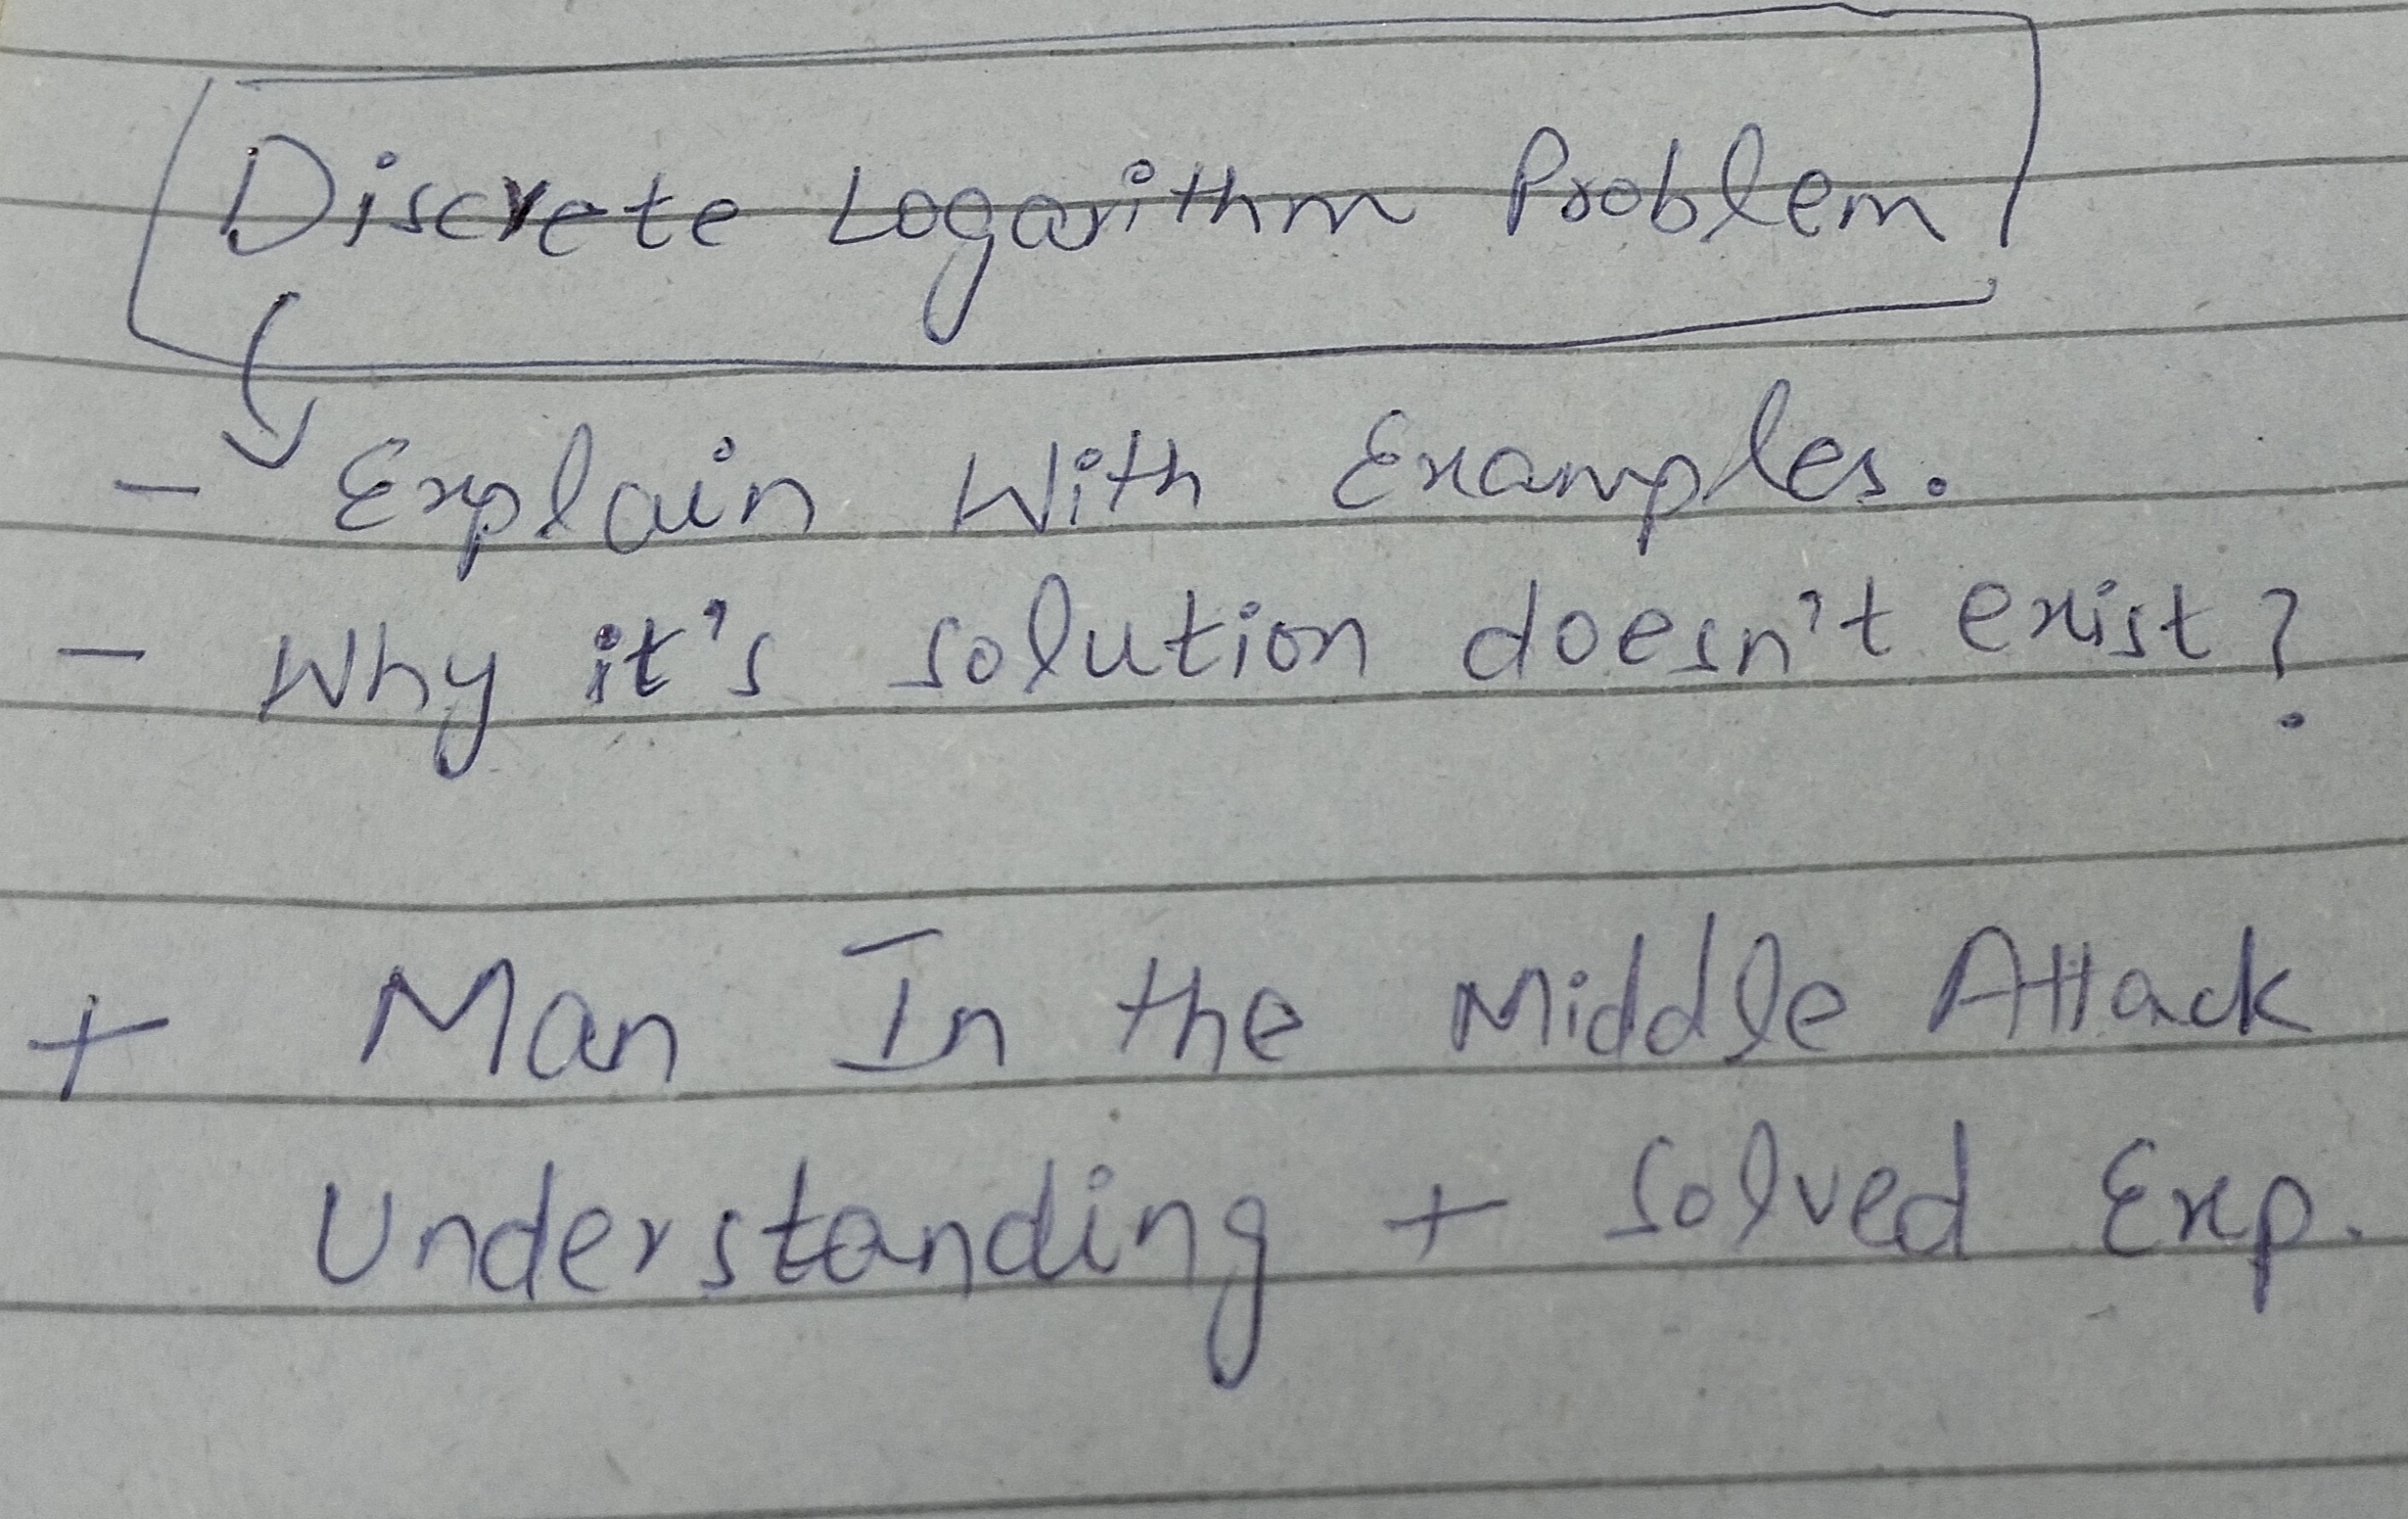 Discrete Logarithm Problem
- Explain With Examples.
- Why it's solution doesn't exist?
+ Man In the Middle Attack
Understanding + Solved Exp.